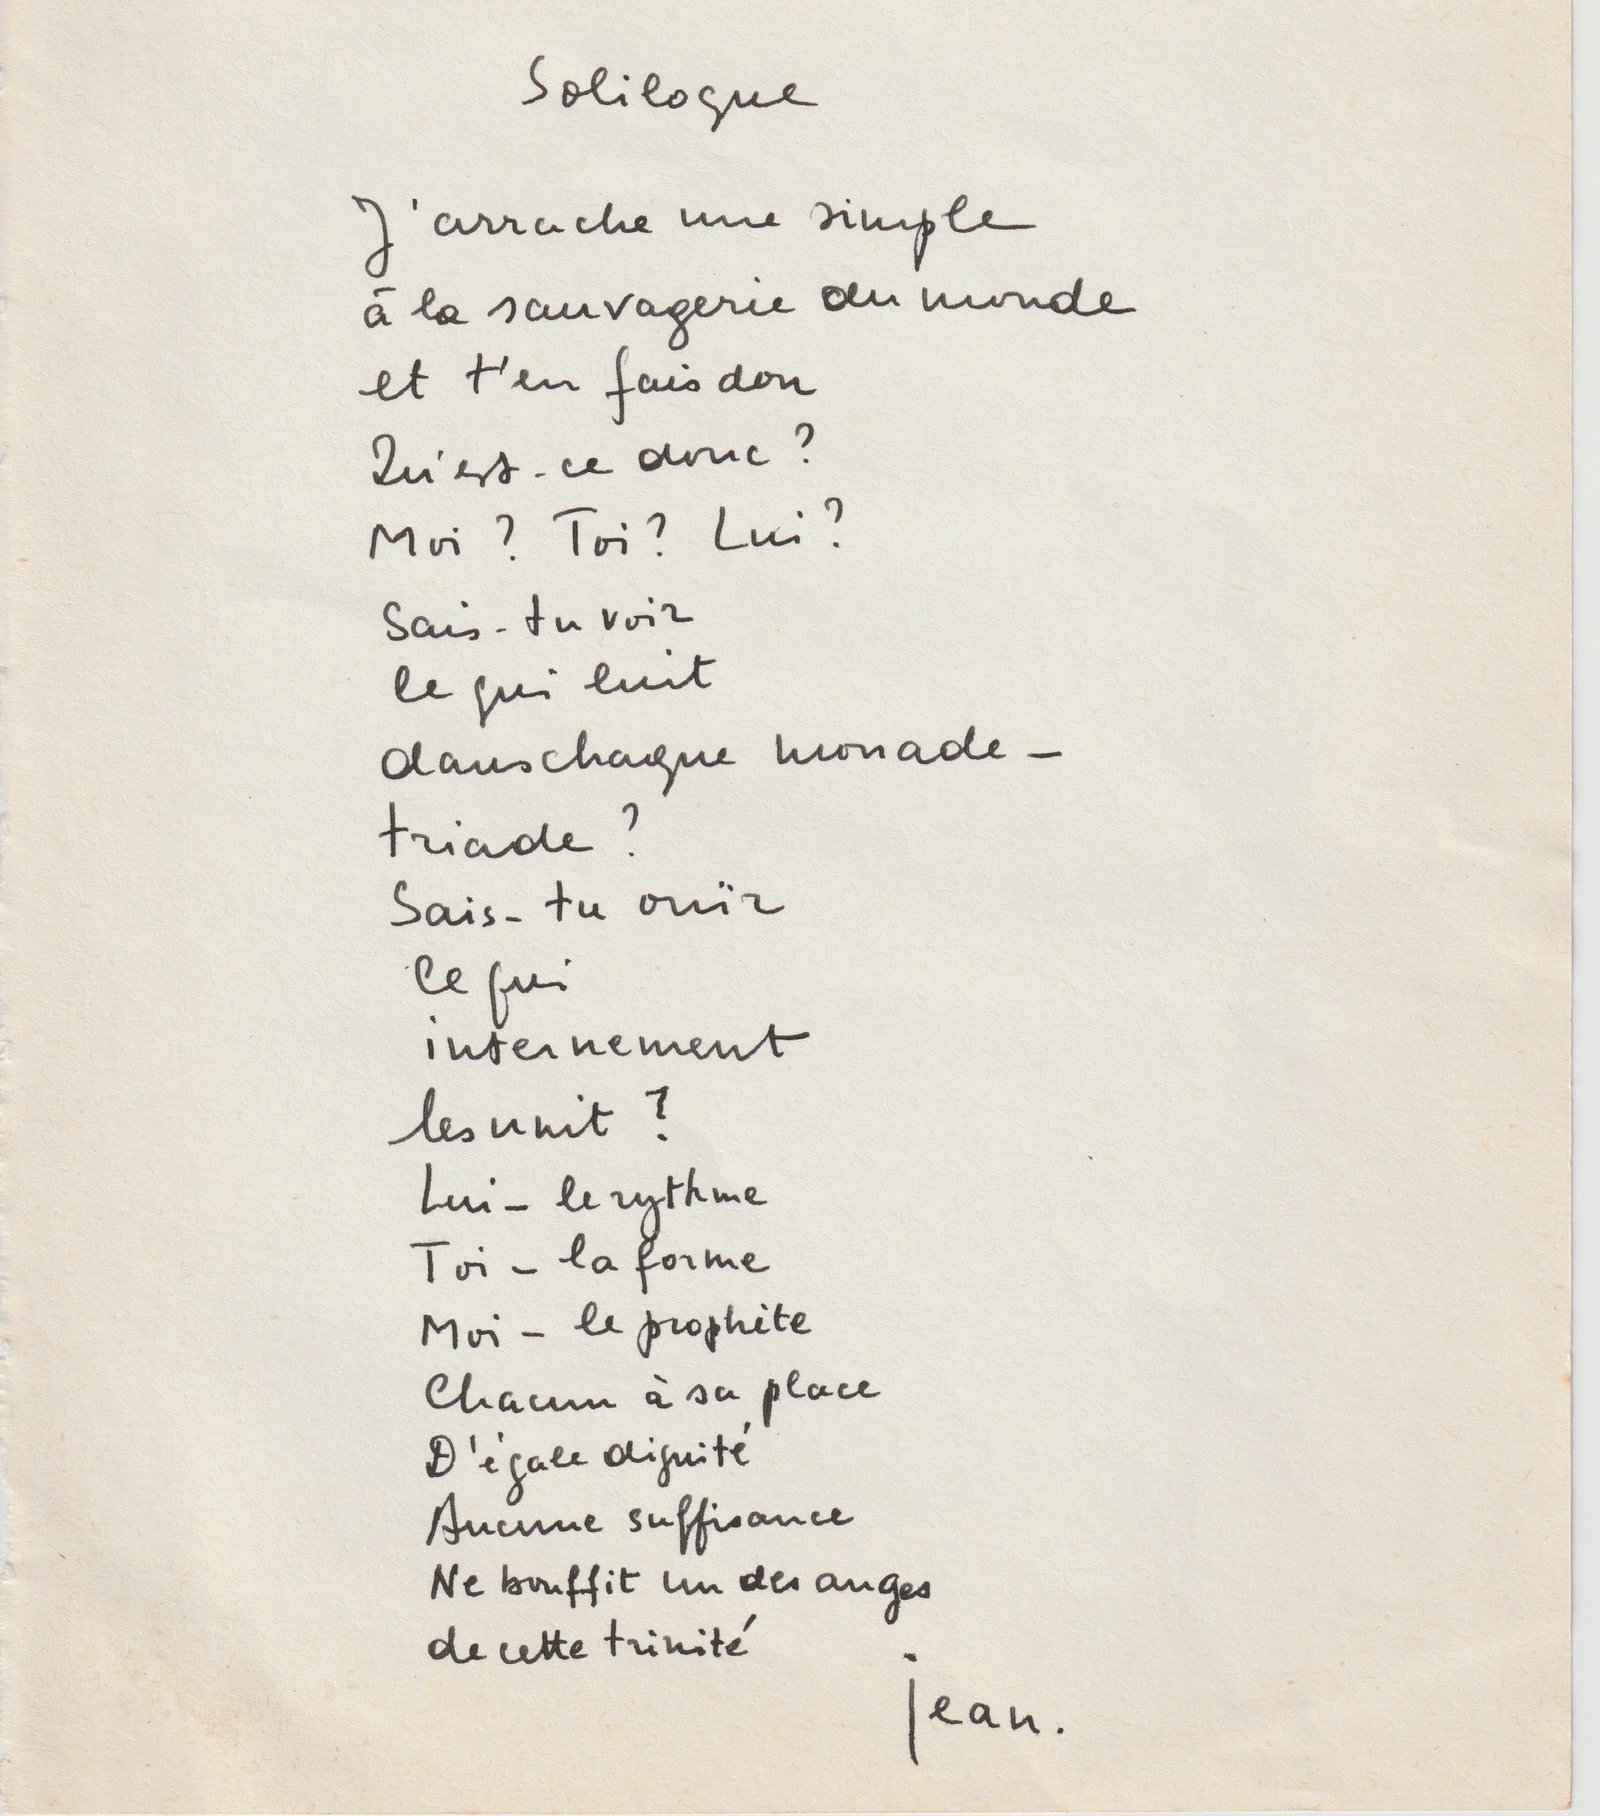 Soliloque
J'arrache une simple
à la sauvagerie du monde
et t'en fais don
Qu'est-ce donc ?
Moi ? Toi ? Lui ?
Sais-tu voir
ce qui luit
dans chaque monade -
triade ?
Sais-tu ouïr
Ce qui
internement
les unit ?
Lui - le rythme
Toi - la forme
Moi - le prophète
Chacun à sa place
D'égale dignité
Aucune suffisance
Ne bouffit un des anges
de cette trinité
jean.